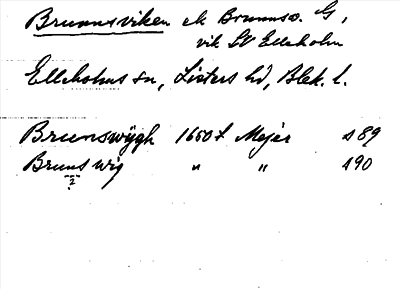 Brunnsviken ek Brunnsv. G,
vik SV Elleholm
Elleholms sn, Listers hd, Blek. l.
Brunswijgh 1650 t. Mejer s 89
Bruns wig " " s 90
2